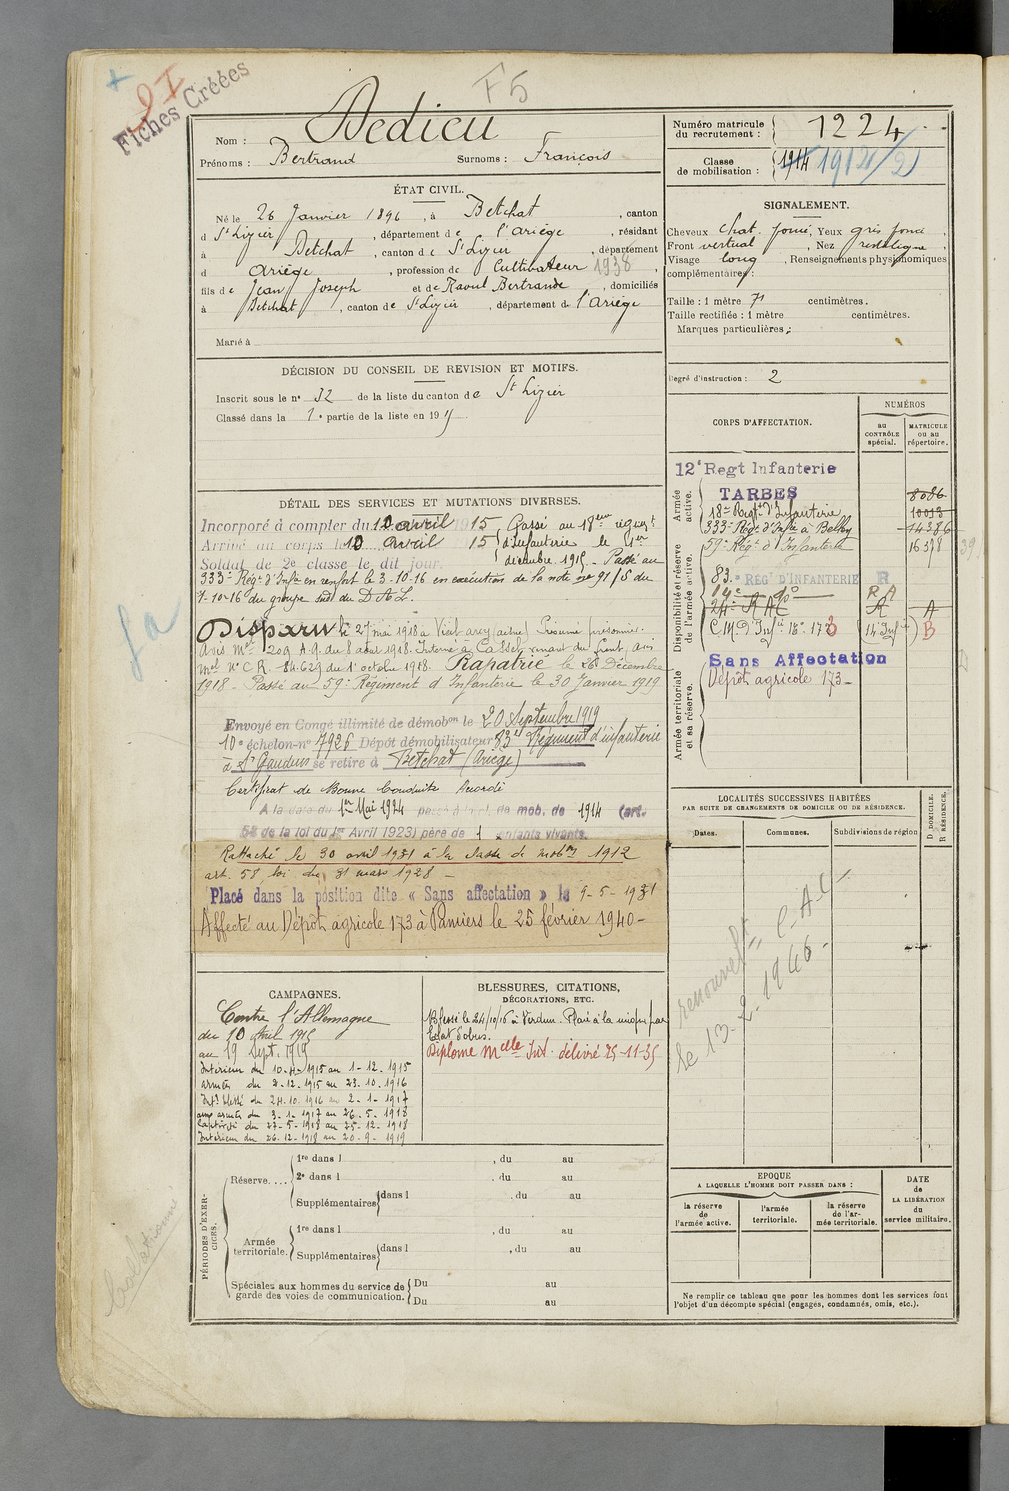 Fiches Créées
F5
Nom : Dedieu
Prénoms : Bertrand Surnoms : François
ÉTAT CIVIL.
Né le 26 Janvier 1896, à Betchat, canton
d St Lizier, département de l'Ariège, résidant
à Betchat, canton de St Lizier, département
d Ariège, profession de Cultivateur 1938,
fils de Jean Joseph et de Raoul Bertrande, domiciliés
à Betchat, canton de St Lizier, département de l'Ariège
Marié à
DÉCISION DU CONSEIL DE REVISION ET MOTIFS.
Inscrit sous le n° 32 de la liste du canton de St Lizier
Classé dans la 1e partie de la liste en 19
DÉTAIL DES SERVICES ET MUTATIONS DIVERSES.
Incorporé à compter du 10 avril 1915 Passé au 18eme régimt
Arrivé au corps le 10 avril 15 d'Infanterie le 1er
Soldat de 2e classe le dit jour. décembre 1915 - Passé au
333e Régt d'Infie en renfort le 3-10-16 en exécution de la note no 91/S du
7-10-16 du groupe sud du D.A.L.
Disparu le 27 mai 1918 à Vieil-arcy (aisne) Présumé prisonnier.
avis Mel 209 A.9. du 8 aout 1918. Interné à Cassel venant du front, avis
mel N° C R. 84.629 du 1er octobre 1918. Rapatrié le 26 Décembre
1918 - Passé au 59e Régiment d'Infanterie le 30 Janvier 1919
Envoyé en Congé illimité de démobon le 20 Septembre 1919
10e échelon-n° 7926 Dépôt démobilisateur 83e Régiment d'infanterie
à St Gaudens se retire à Betchat (Ariège)
Certificat de Bonne Conduite Accordé
A la date du 1er Mai 1924 passé à la cl. de mob. de 1914 (art.
58 de la loi du 1er Avril 1923) père de 1 enfants vivants.
Rattaché le 30 avril 1931 à la classe de mobon 1912
art. 58 loi du 31 mars 1928 -
Placé dans la position dite « Sans affectation » le 9-5-1931
Affecté au Dépôt agricole 173 à Pamiers le 25 février 1940 -
CAMPAGNES.
Contre l'Allemagne
du 10 Avril 1915
au 19 Sept. 1919
Intérieur du 10-4-1915 au 1-12-1915
armées du 2.12.1915 au 23.10.1916
Intr blessé du 24.10.1916 au 2-1-1917
aux armées du 3-1-1917 au 26-5-1918
Captivité du 27-5-1918 au 25-12-1918
Intérieur du 26-12-1918 au 20-9-1919
BLESSURES, CITATIONS,
DÉCORATIONS, ETC.
Blessé le 24/10/16 à Verdun. Plaie à la nuque par
Eclat d'obus.
Diplome Mcelle Inst. délivré 25-11-35
PÉRIODES D'EXERCICES.
Réserve.... 1re dans l , du au
2e dans l , du au
Supplémentaires dans l , du au
Armée territoriale. 1re dans l , du au
Supplémentaires dans l , du au
Spéciales aux hommes du service de garde des voies de communication. Du au
Du au
Numéro matricule du recrutement : 1224
Classe de mobilisation : 1914 1912
SIGNALEMENT.
Cheveux chat. foncé, Yeux gris foncé,
Front vertical, Nez rectiligne,
Visage long, Renseignements physionomiques
complémentaires :
Taille : 1 mètre 71 centimètres.
Taille rectifiée : 1 mètre centimètres.
Marques particulières :
Degré d'instruction : 2
CORPS D'AFFECTATION.
NUMÉROS
au CONTRÔLE spécial.
MATRICULE ou au répertoire.
Armée active.
12e Regt Infanterie
TARBES 8086
18e Régt d'Infanterie 10013
333e Régt d'Infie à Belley 14386
59e Régt d'Infanterie 16378
Disponibilité et réserve de l'armée active.
83e RÉG' D'INFANTERIE R
14e do R A
24e R A C A A
C.M. D'Inf ie 16e 173 (14 Inf ie) B
Sans Affectation
Armée territoriale et sa réserve.
Dépôt agricole 173 -
LOCALITÉS SUCCESSIVES HABITÉES
PAR SUITE DE CHANGEMENTS DE DOMICILE OU DE RÉSIDENCE.
Dates.
Communes.
Subdivisions de région
D DOMICILE.
R RÉSIDENCE.
renouvelt C.A.C
le 13-2-1946 -
EPOQUE
A LAQUELLE L'HOMME DOIT PASSER DANS :
la réserve de l'armée active.
l'armée territoriale.
la réserve de l'armée territoriale.
DATE
de
LA LIBÉRATION
du
service militaire.
Ne remplir ce tableau que pour les hommes dont les services font
l'objet d'un décompte spécial (engagés, condamnés, omis, etc.).